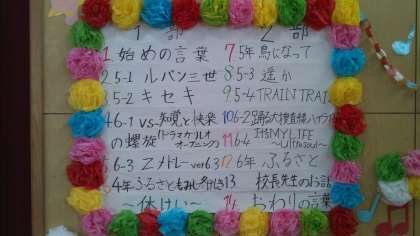 1部
1. 始めの言葉
2. 5-1 ルパン三世
5-2 キセキ
4 6-1 vs.~知覚と快楽
の螺旋(ドラマガリレオ
オープニング)
5. 6-3 Zメドレーver6.3
4年ふるさともみじ
~休けい~
2部
7 5年鳥になって
8 5-3 遥か
9. 5-4 TRAIN TRAIN
10 6-2 踊る大捜査線ハイライト
11 6-4 IT'S MY LIFE
~Ultrasoul~
12 6年 ふるさと
13 校長先生のお話
14 おわりの言葉